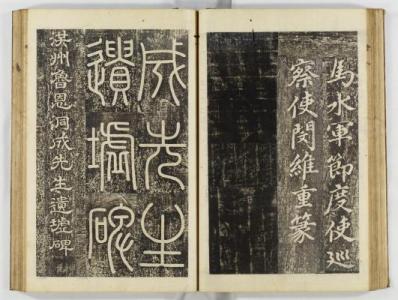 馬水軍節度使巡
察使閔維重篆
成先生
遺墟碑
洪州魯恩洞成先生遺墟碑